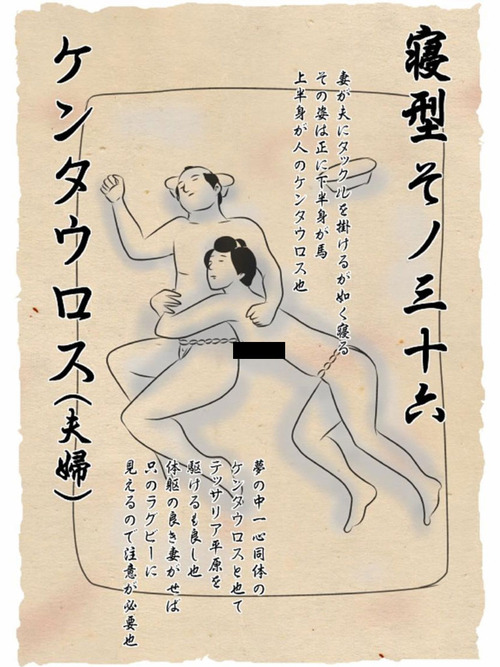 寝型その三十六
妻が夫にタックルを掛けるが如く寝る
その姿は正に下半身が馬
上半身が人のケンタウロス也
ケンタウロス(夫婦)
夢の中一心同体の
ケンタウロスと也て
テッサリア平原を
駆けるも良し也
体躯の良き妻がせば
只のラグビーに
見えるので注意が必要也